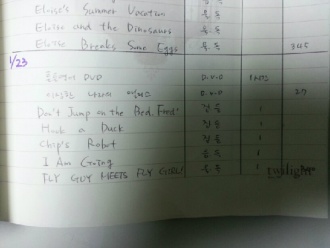 Eloise's Summer Vacation 음독
Eloise and the Dinosaurs 음독
Eloise Breaks Some Eggs 음독 345
1/23
DVD D.V.D
D.V.D 27
Don't Jump on the Bed, Fred! 집듣 1
Hook a Duck 집듣 1
Chip's Robot 집듣 1
I Am Going 음독 1
FLY GUY MEETS FLY GIRL! 음독 1